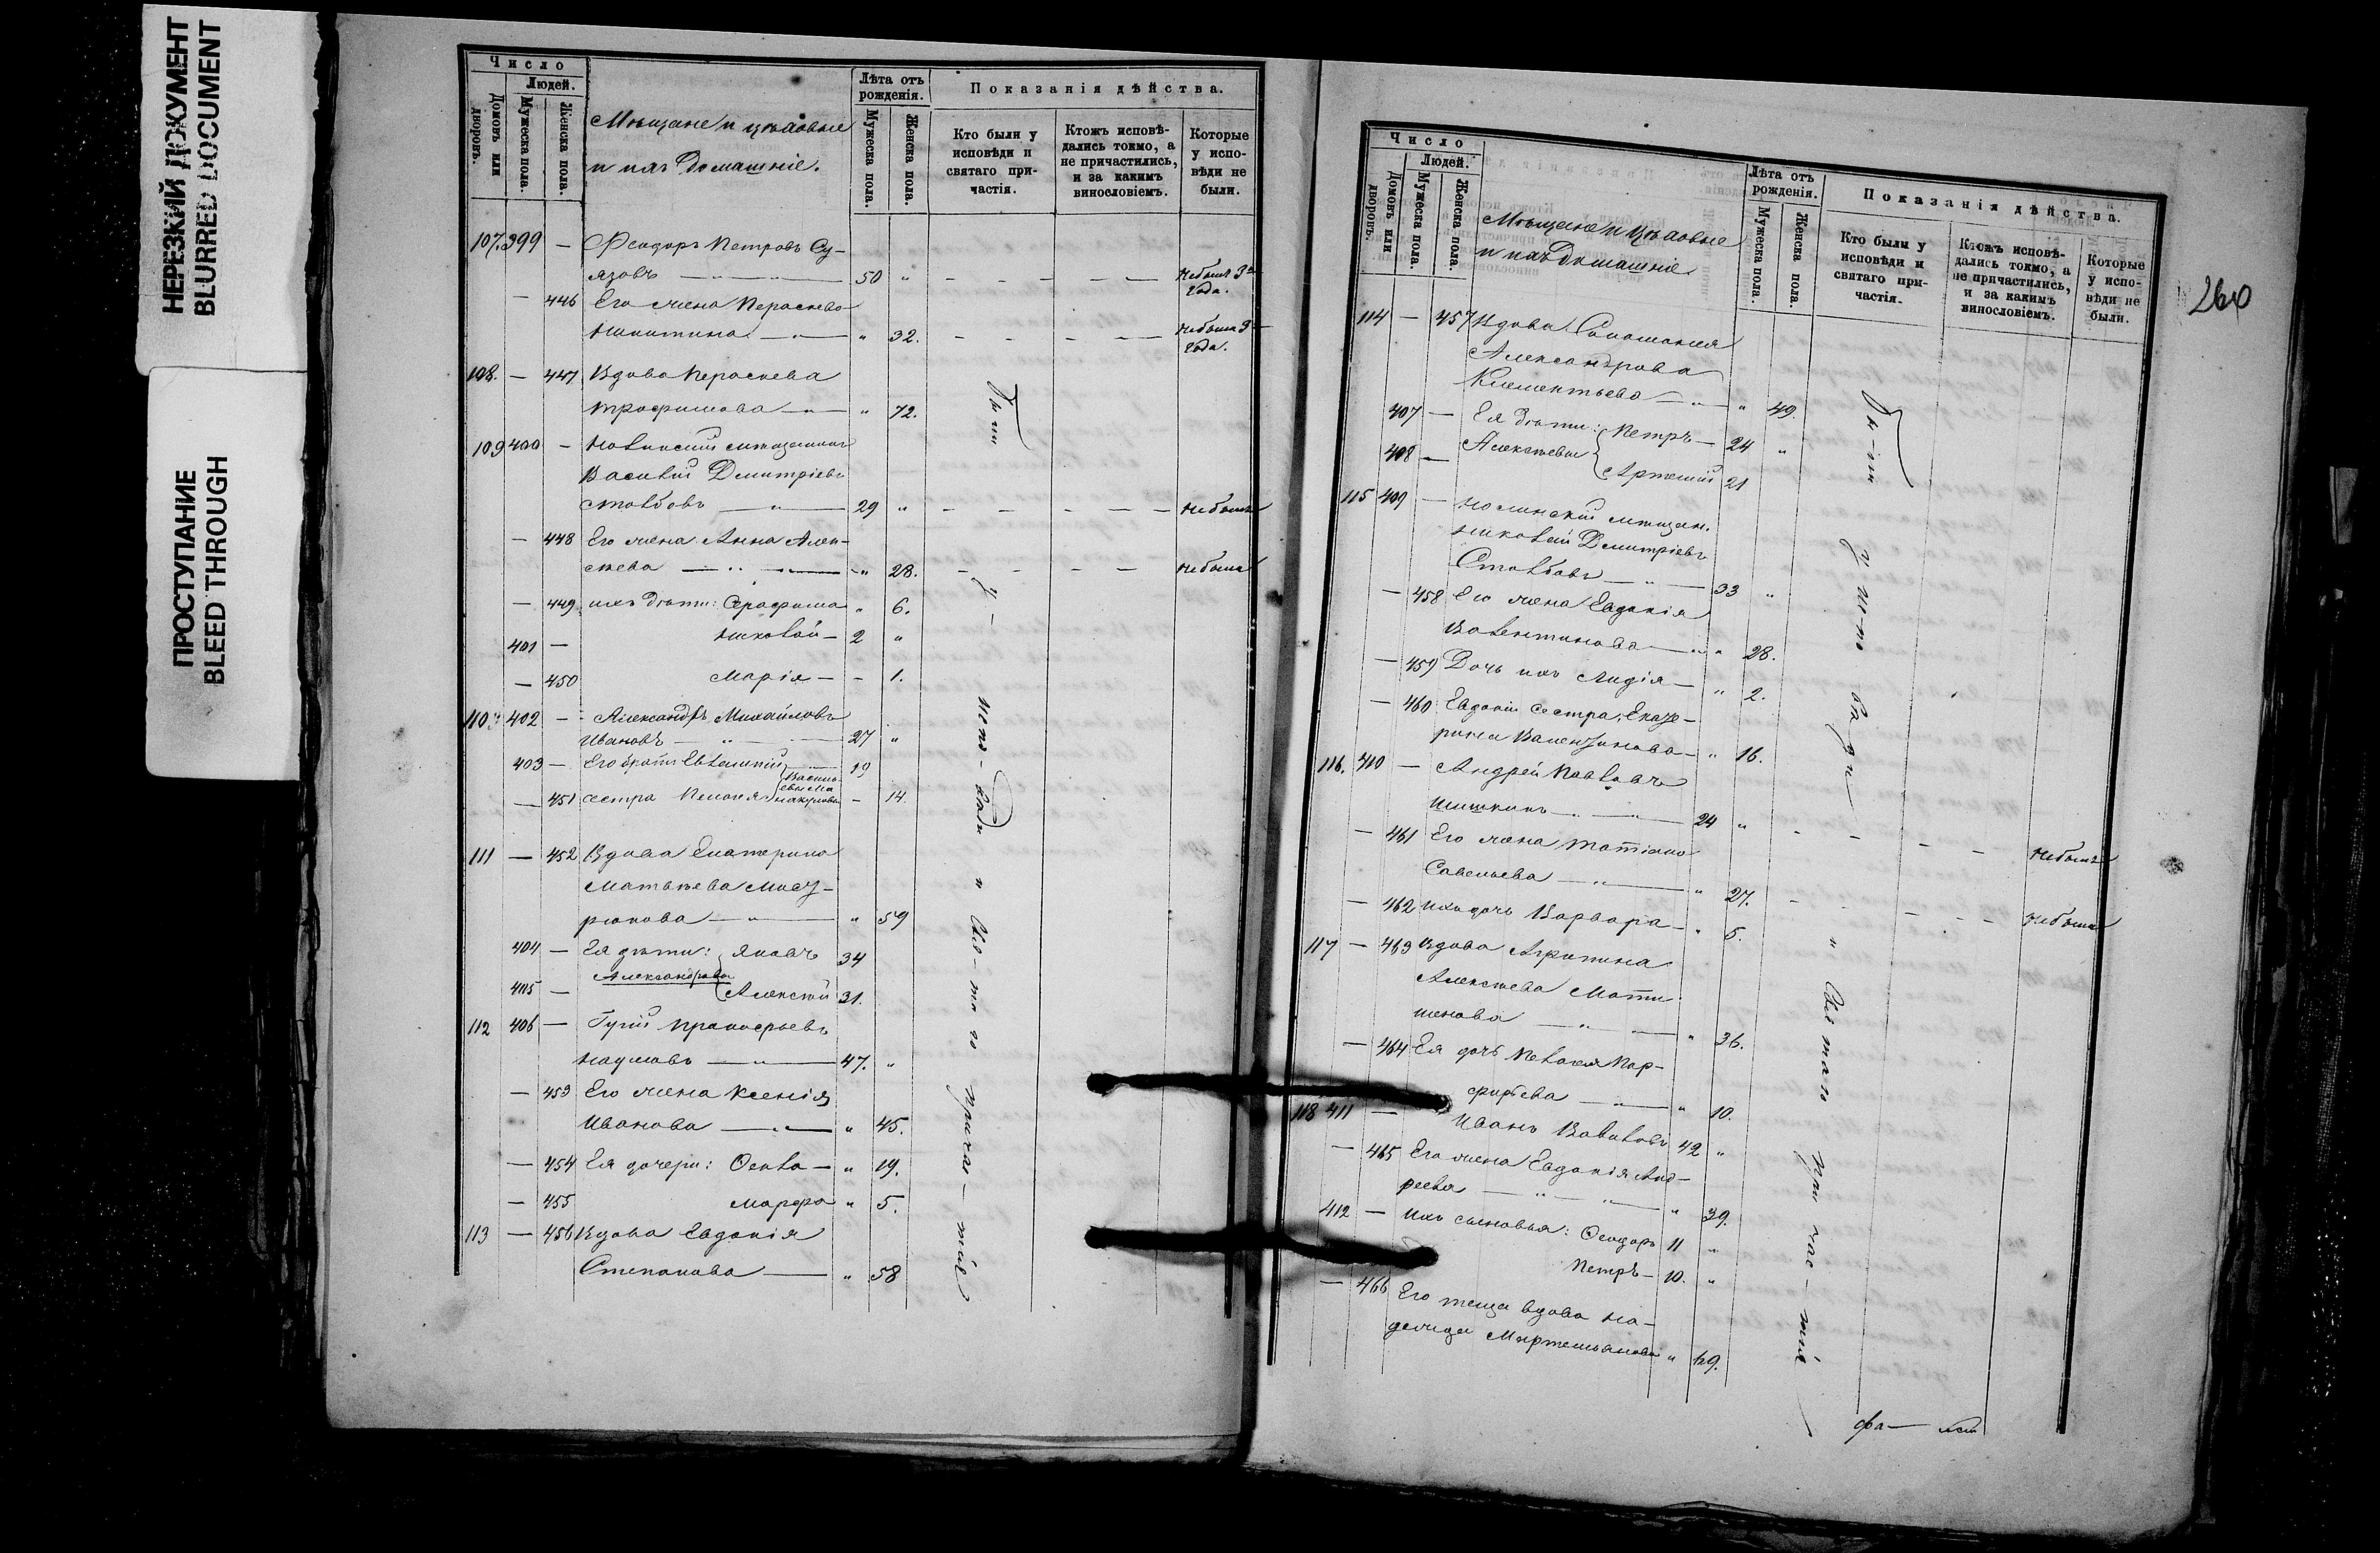 НЕРЕЗКИЙ ДОКУМЕНТ
BLURRED DOCUMENT
ПРОСТУПАНИЕ
BLEED THROUGH
Число
Людей.
Домовъ или дворовъ.
Мужеска пола.
Женска пола.
Мѣщане и цѣховые
и ихъ домашніе.
Лѣта отъ рожденія.
Мужеска пола.
Женска пола.
Показанія дѣйства.
Кто были у исповѣди и святаго причастія.
Ктожъ исповѣдались токмо, а не причастились, и за какимъ винословіемъ.
Которые у исповѣди не были.
107. 399 — Феодоръ Петровъ Су-
язовъ — " — 50 " — — — — небылъ 3
года.
— 446 Его жена Параскева
Никитина — " — " 32. — — — — небыла 3
года.
108. — 447 Вдова Параскева
Трофимова — " — " 72.
109 400 — Нолинский мѣщанинъ
Василій Дмитріевъ
Столбовъ — " — 29 " — — — — — небылъ
— 448 Его жена Анна Алек-
сѣева — " — " 28. — — — — небыла
— 449 ихъ дѣти: Серафима " 6.
401 — Николай — 2 "
— 450 Марія — - 1.
110 402 — Александръ Михайловъ
Ивановъ — " — 27 "
403 — Его братъ Евлампій — 19
— 451 сестра Пелагея — 14
111 — 452 Вдова Екатерина
Матвѣева
рюкова — " — " 59
404 — Ея дѣти: Яковъ 34
Александровы
405 — Алексѣй 31.
112 406 — Гурій Прокопьевъ
Наумовъ — " — 47. "
— 453 Его жена Ксенія
Иванова — " — " 45.
— 454 Ея дочери: Фекла — " 19.
— 455 Марфа " 5.
113 — 456 Вдова Евдокія
Степанова — " 58
Бы-ли
у
испо-вѣди и Свя-та го причас-тія
Число
Людей.
Домовъ или дворовъ.
Мужеска пола.
Женска пола.
Мѣщане и цѣховые
и ихъ домашніе
Лѣта отъ рожденія.
Мужеска пола.
Женска пола.
Показанія дѣйства.
Кто были у исповѣди и святаго причастія.
Ктожъ исповѣдались токмо, а не причастились, и за какимъ винословіемъ.
Которые у исповѣди не были.
260
114 — 457 Вдова Соломонія
Александрова
Климентьева — " — " 49.
407 — Ея дѣти: Петръ — 24 "
408 — Алексѣевы Артемій 21
115 409 — Нолинскій мѣщан.
Николай Дмитріевъ
Столбовъ — " — 33 "
— 458 Его жена Евдокія
Валентинова — " " 28.
— 459 Дочь ихъ Лидія — " 2.
— 460 Евдокіи сестра, Екате-
рина Валентинова — " 16.
116. 410 — Андрей Павловъ
Шишкинъ — " — 24 " - - - - небылъ
— 461 Его жена Татіана
Савельева — " — " 27. - - - - - небыла
— 462 ихъ дочь Варвара — " 5.
117 — 463 Вдова Агрипина
Алексѣева
— " — " 36.
— 464 Ея дочь Пелагея Пор-
фирьева — " — " 10.
118 411 — Иванъ Вавиловъ 42 "
— 465 Его жена Евдокія Анд-
реева — " — " — " 39.
412 — Ихъ сыновья: Феодоръ 11 "
Петръ — 10. "
— 466 Его теща вдова На-
дежда Мартемьянова " 69.
Бы-ли у ис-по вѣди
и Свя таго при час-тія